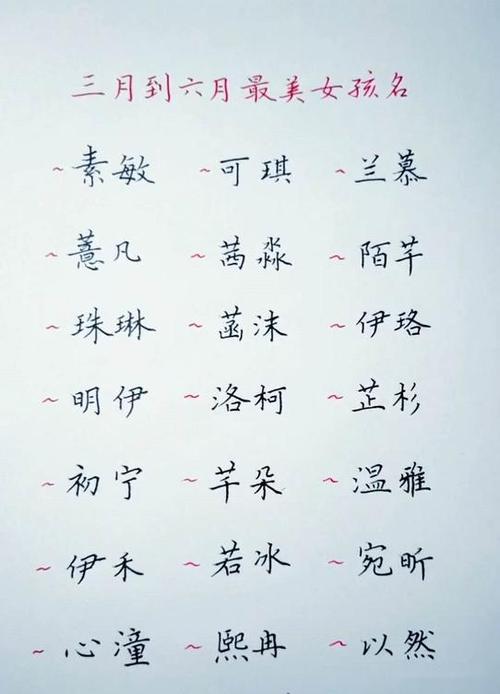 三月到六月最美女孩名
~素敏 ~可琪 ~兰慕
~薏凡 ~茜淼 ~陌芊
~珠琳 ~菡沫 ~伊珞
~明伊 ~洛柯 ~芷杉
~初宁 ~芊朵 ~温雅
~伊禾 ~若冰 ~宛昕
~心潼 ~熙冉 ~以然